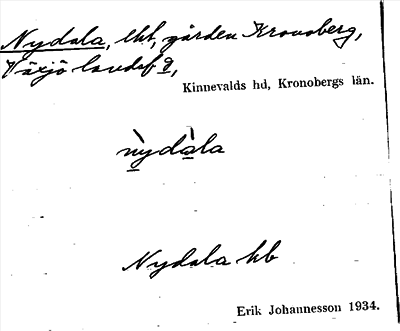 Nydala, lht, gården Kronoberg,
Växjö landsf g,
Kinnevalds hd, Kronobergs län.
nỳdàla
Nydala hb
Erik Johannesson 1934.